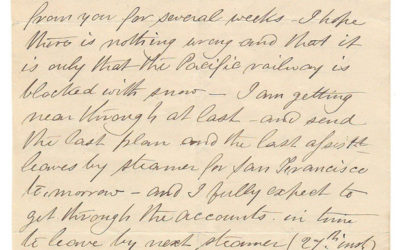 from you for several weeks - I hope
there is nothing wrong and that it
is only that the Pacific railway is
blocked with snow - I am getting
near through at last - and send
the last plan and the last assistt
leaves by steamer for San Francisco
tomorrow - and I fully expect to
get through the accounts in time
to leave by next steamer (27th inst